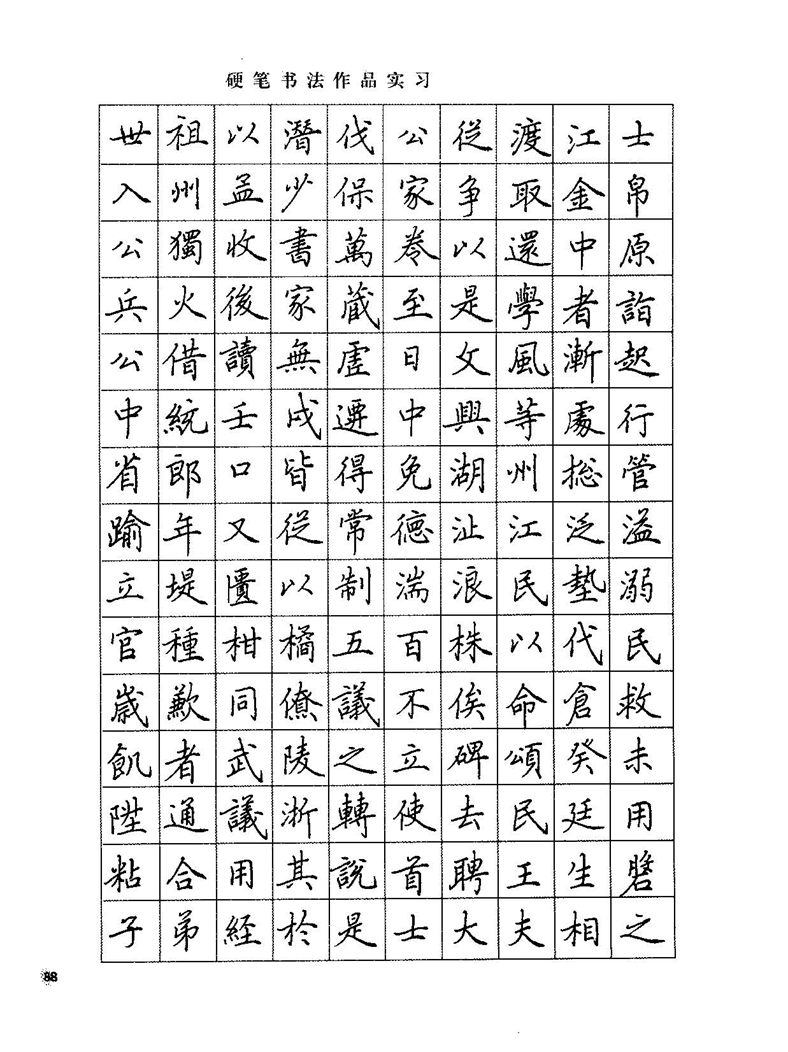 硬笔书法作品实习
世祖以潛伐公從渡江士
入州孟少保家争取金帛
公獨收書萬卷以還中原
兵火後家蔵至是學者詣
公借讀無虛日文風漸起
中統壬戌遷中興等處行
省郎口皆得免湖州捴管
踰年又從常德沚江泛溢
立堤匱以制湍浪民墊溺
官種柑橘五百株以代民
歲歉同僚議不俟命倉救
飢者武陵之立碑頌癸未
陞通議淅轉使去民廷用
粘合用其説首聘王生
子弟經於是士大夫相之
88